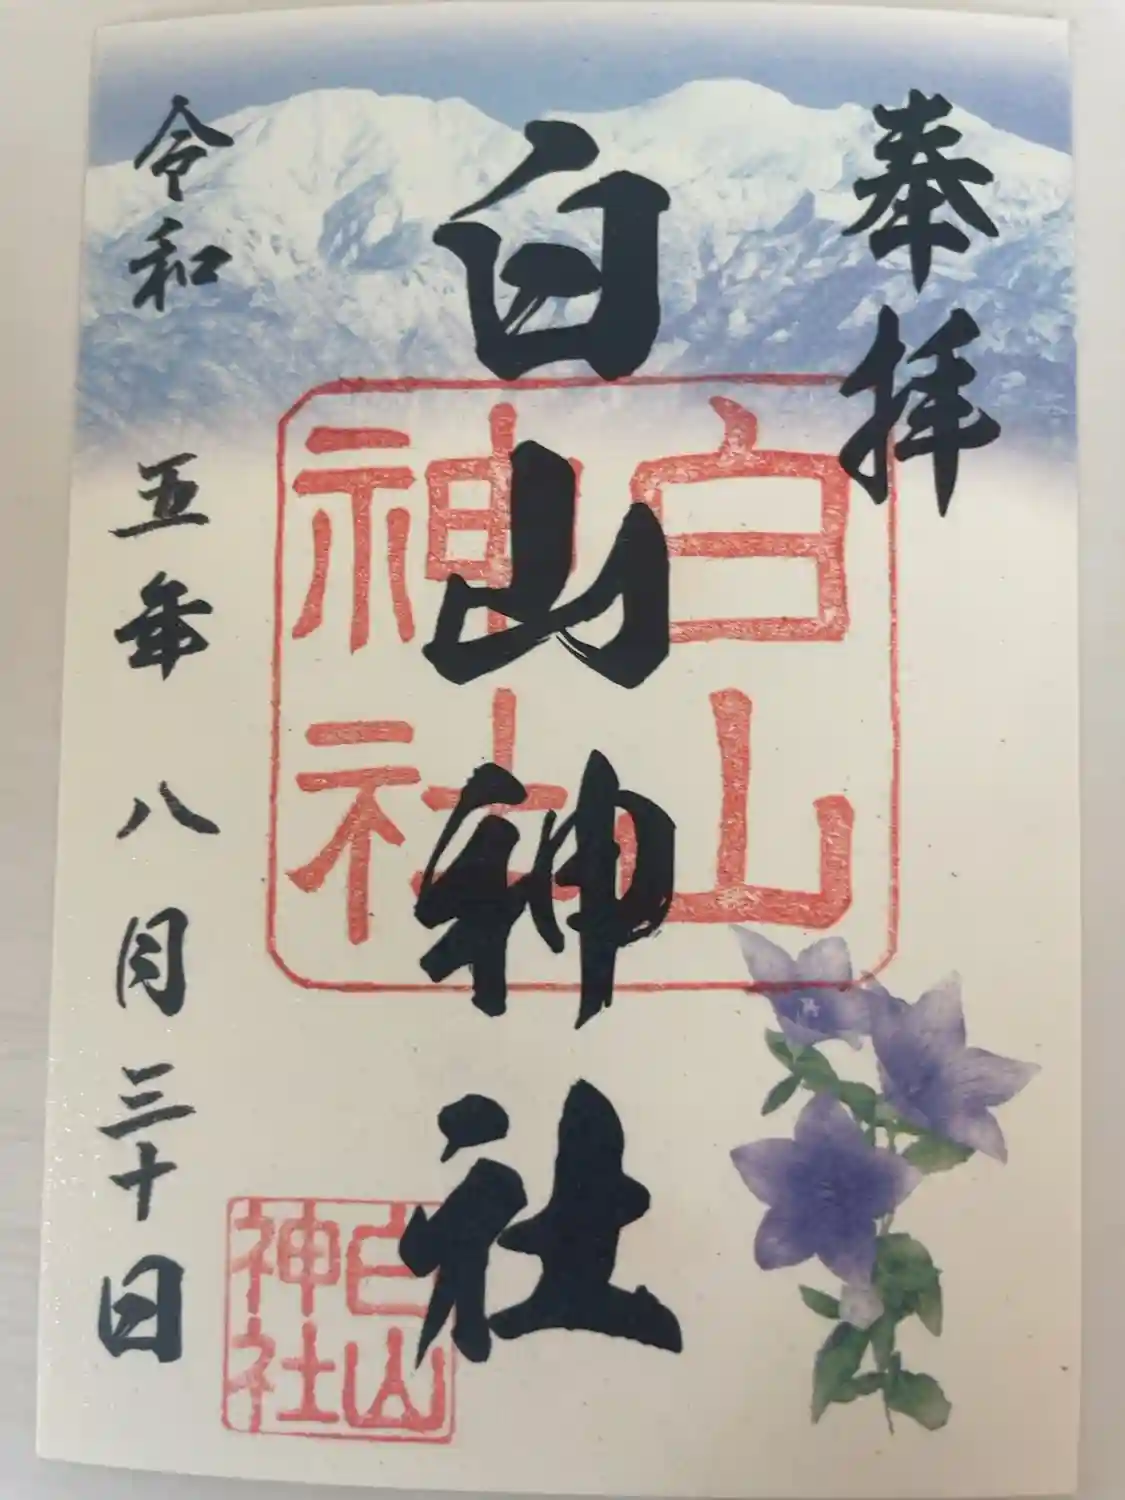 奉拝
白山神社
白山
神社
白山
神社
令和五年八月三十日